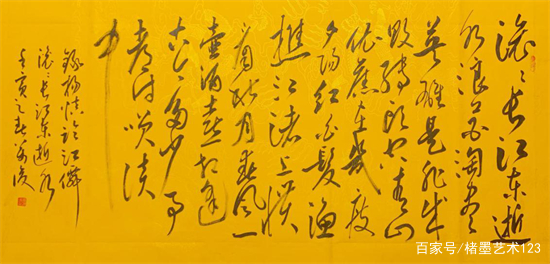 滚滚长江东逝
水浪花淘尽
英雄是非成
败转头空青山
依旧在几度
夕阳红白发渔
樵江渚上惯
看秋月春风一
壶浊酒喜相逢
古今多少事
都付笑谈
中
录杨慎临江僊
滚滚长江东逝水
壬寅之春
百家号/楮墨艺术123